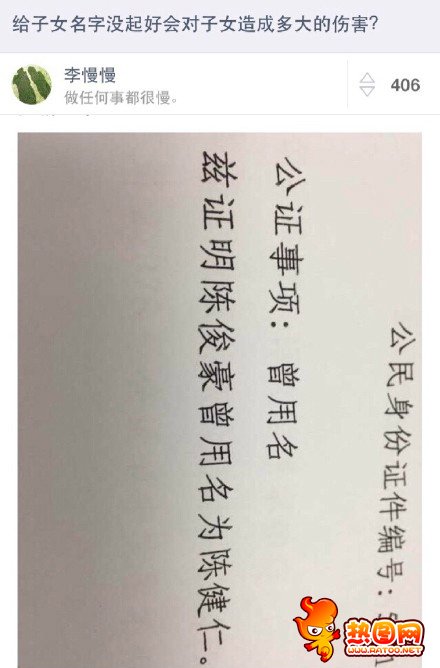 给子女名字没起好会对子女造成多大的伤害?
李慢慢
做任何事都很慢。
406
公民身份证件编号:
公证事项: 曾用名
兹证明陈俊豪曾用名为陈健仁。
热图网
WWW.RATOO.NET